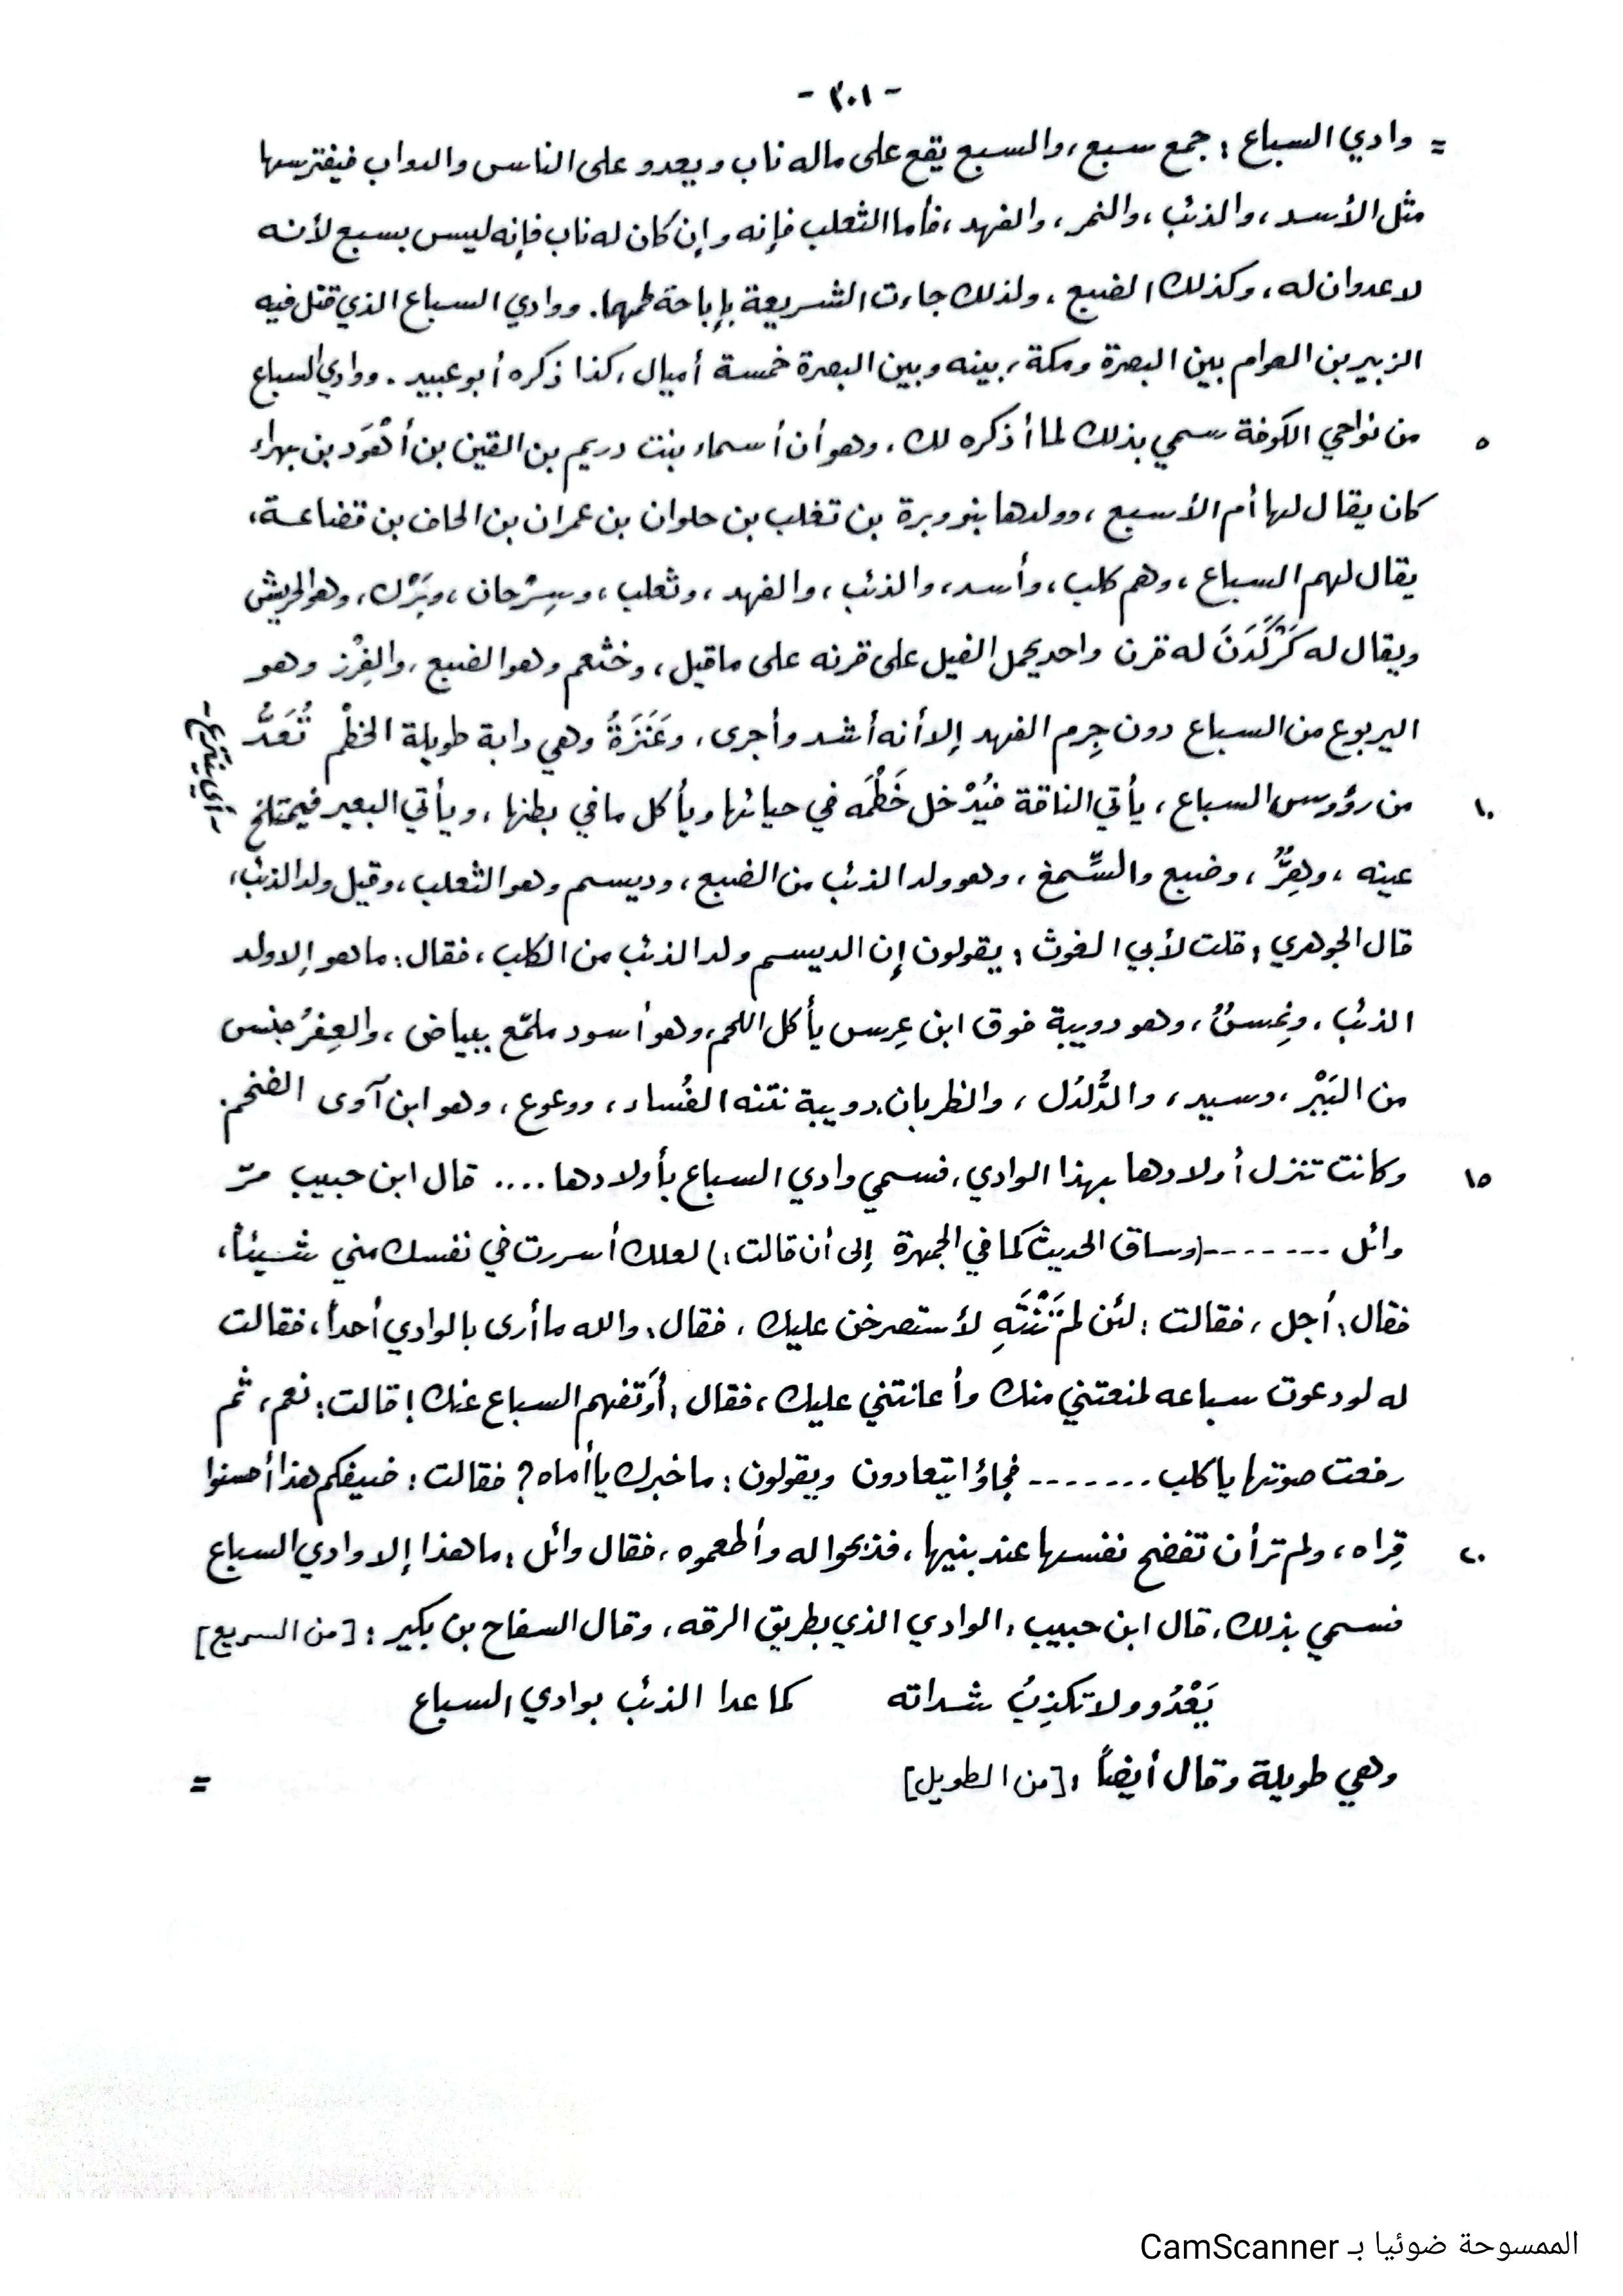 - ٣٠١ -
= وادي السباع : جمع سبع، والسبع يقع على ماله ناب ويعدو على الناس والدواب فيفترسها
مثل الأسد، والذئب، والنمر، والفهد، فأما الثعلب فإنه وإن كان له ناب فإنه ليس بسبع لأنه
لا عدوان له، وكذلك الضبع، ولذلك جاءت الشريعة بإباحة لحمهما. ووادي السباع الذي قتل فيه
الزبير بن العوام بين البصرة ومكة، بينه وبين البصرة خمسة أميال، كذا ذكره أبو عبيد. ووادي السباع
٥ من نواحي الكوفة سمي بذلك لما أذكره لك، وهو أن أسماء بنت دريم بن القين بن أهْوَد بن بهراء
كان يقال لها أم الأسبع، وولدها بنو وبرة بن تغلب بن حلوان بن عمران بن الحاف بن قضاعة،
يقال لهم السباع، وهم كلب، وأسد، والذئب، والفهد، وثعلب، وسِرْحان، وبَرْك، وهو الحريش
ويقال له كَرْكَدَنَ له قرن واحد يحمل الفيل على قرنه على ما قيل، وخثعم وهو الضبع، والفِزْز وهو
اليربوع من السباع دون جِرم الفهد إلا أنه أشد وأجرى، وعَنَزَةُ وهي دابة طويلة الخطْم تُعَدُّ
١٠ من رؤوس السباع، يأتي الناقة فيُدْخل خَطْمَه في حيائها ويأكل ما في بطنها، ويأتي البعير فيمتلخ
- أي ينتزع -
عينه، وهِرٌّ، وضبع والسِّمع، وهو ولد الذئب من الضبع، وديسم وهو الثعلب، وقيل ولد الذئب،
قال الجوهري : قلت لأبي الغوث : يقولون إن الديسم ولد الذئب من الكلب، فقال: ما هو إلا ولد
الذئب، ونِمسٌ، وهو دويبة فوق ابن عِرس يأكل اللحم، وهو أسود ملمّع ببياض، والعِفرُ جنس
من البَبْر، وسيد، والدُّلدُل، والظربان، دويبة نتنه الفُساء، ووعوع، وهو ابن آوى الضخم.
١٥ وكانت تنزل أولادها بهذا الوادي، فسمي وادي السباع بأولادها .... قال ابن حبيب مرّ
وائل -------(وساق الحديث كما في الجمهرة إلى أن قالت:) لعلك أسررت في نفسك مني شيئاً،
فقال: أجل، فقالت : لئن لم تَنْتَهِ لأستصرخن عليك، فقال: والله ما أرى بالوادي أحداً، فقالت
له لو دعوت سباعه لمنعتني منك وأعانتني عليك، فقال: أوَتفهم السباع عنك! قالت: نعم، ثم
رفعت صوتها يا كلب ------- فجاؤا يتعادون ويقولون: ما خبرك يا أماه؟ فقالت: ضيفكم هذا أحسنوا
٢٠ قِراه، ولم ترأن تفضح نفسها عند بنيها، فذبحوا له وأطعموه، فقال وائل : ما هذا إلا وادي السباع
فسمي بذلك، قال ابن حبيب : الوادي الذي بطريق الرقه، وقال السفاح بن بكير : [من السريع]
يَعْدُو ولا تكذِبُ شداته كما عدا الذئب بوادي السباع
وهي طويلة وقال أيضاً : [من الطويل] =
الممسوحة ضوئيا بـ CamScanner